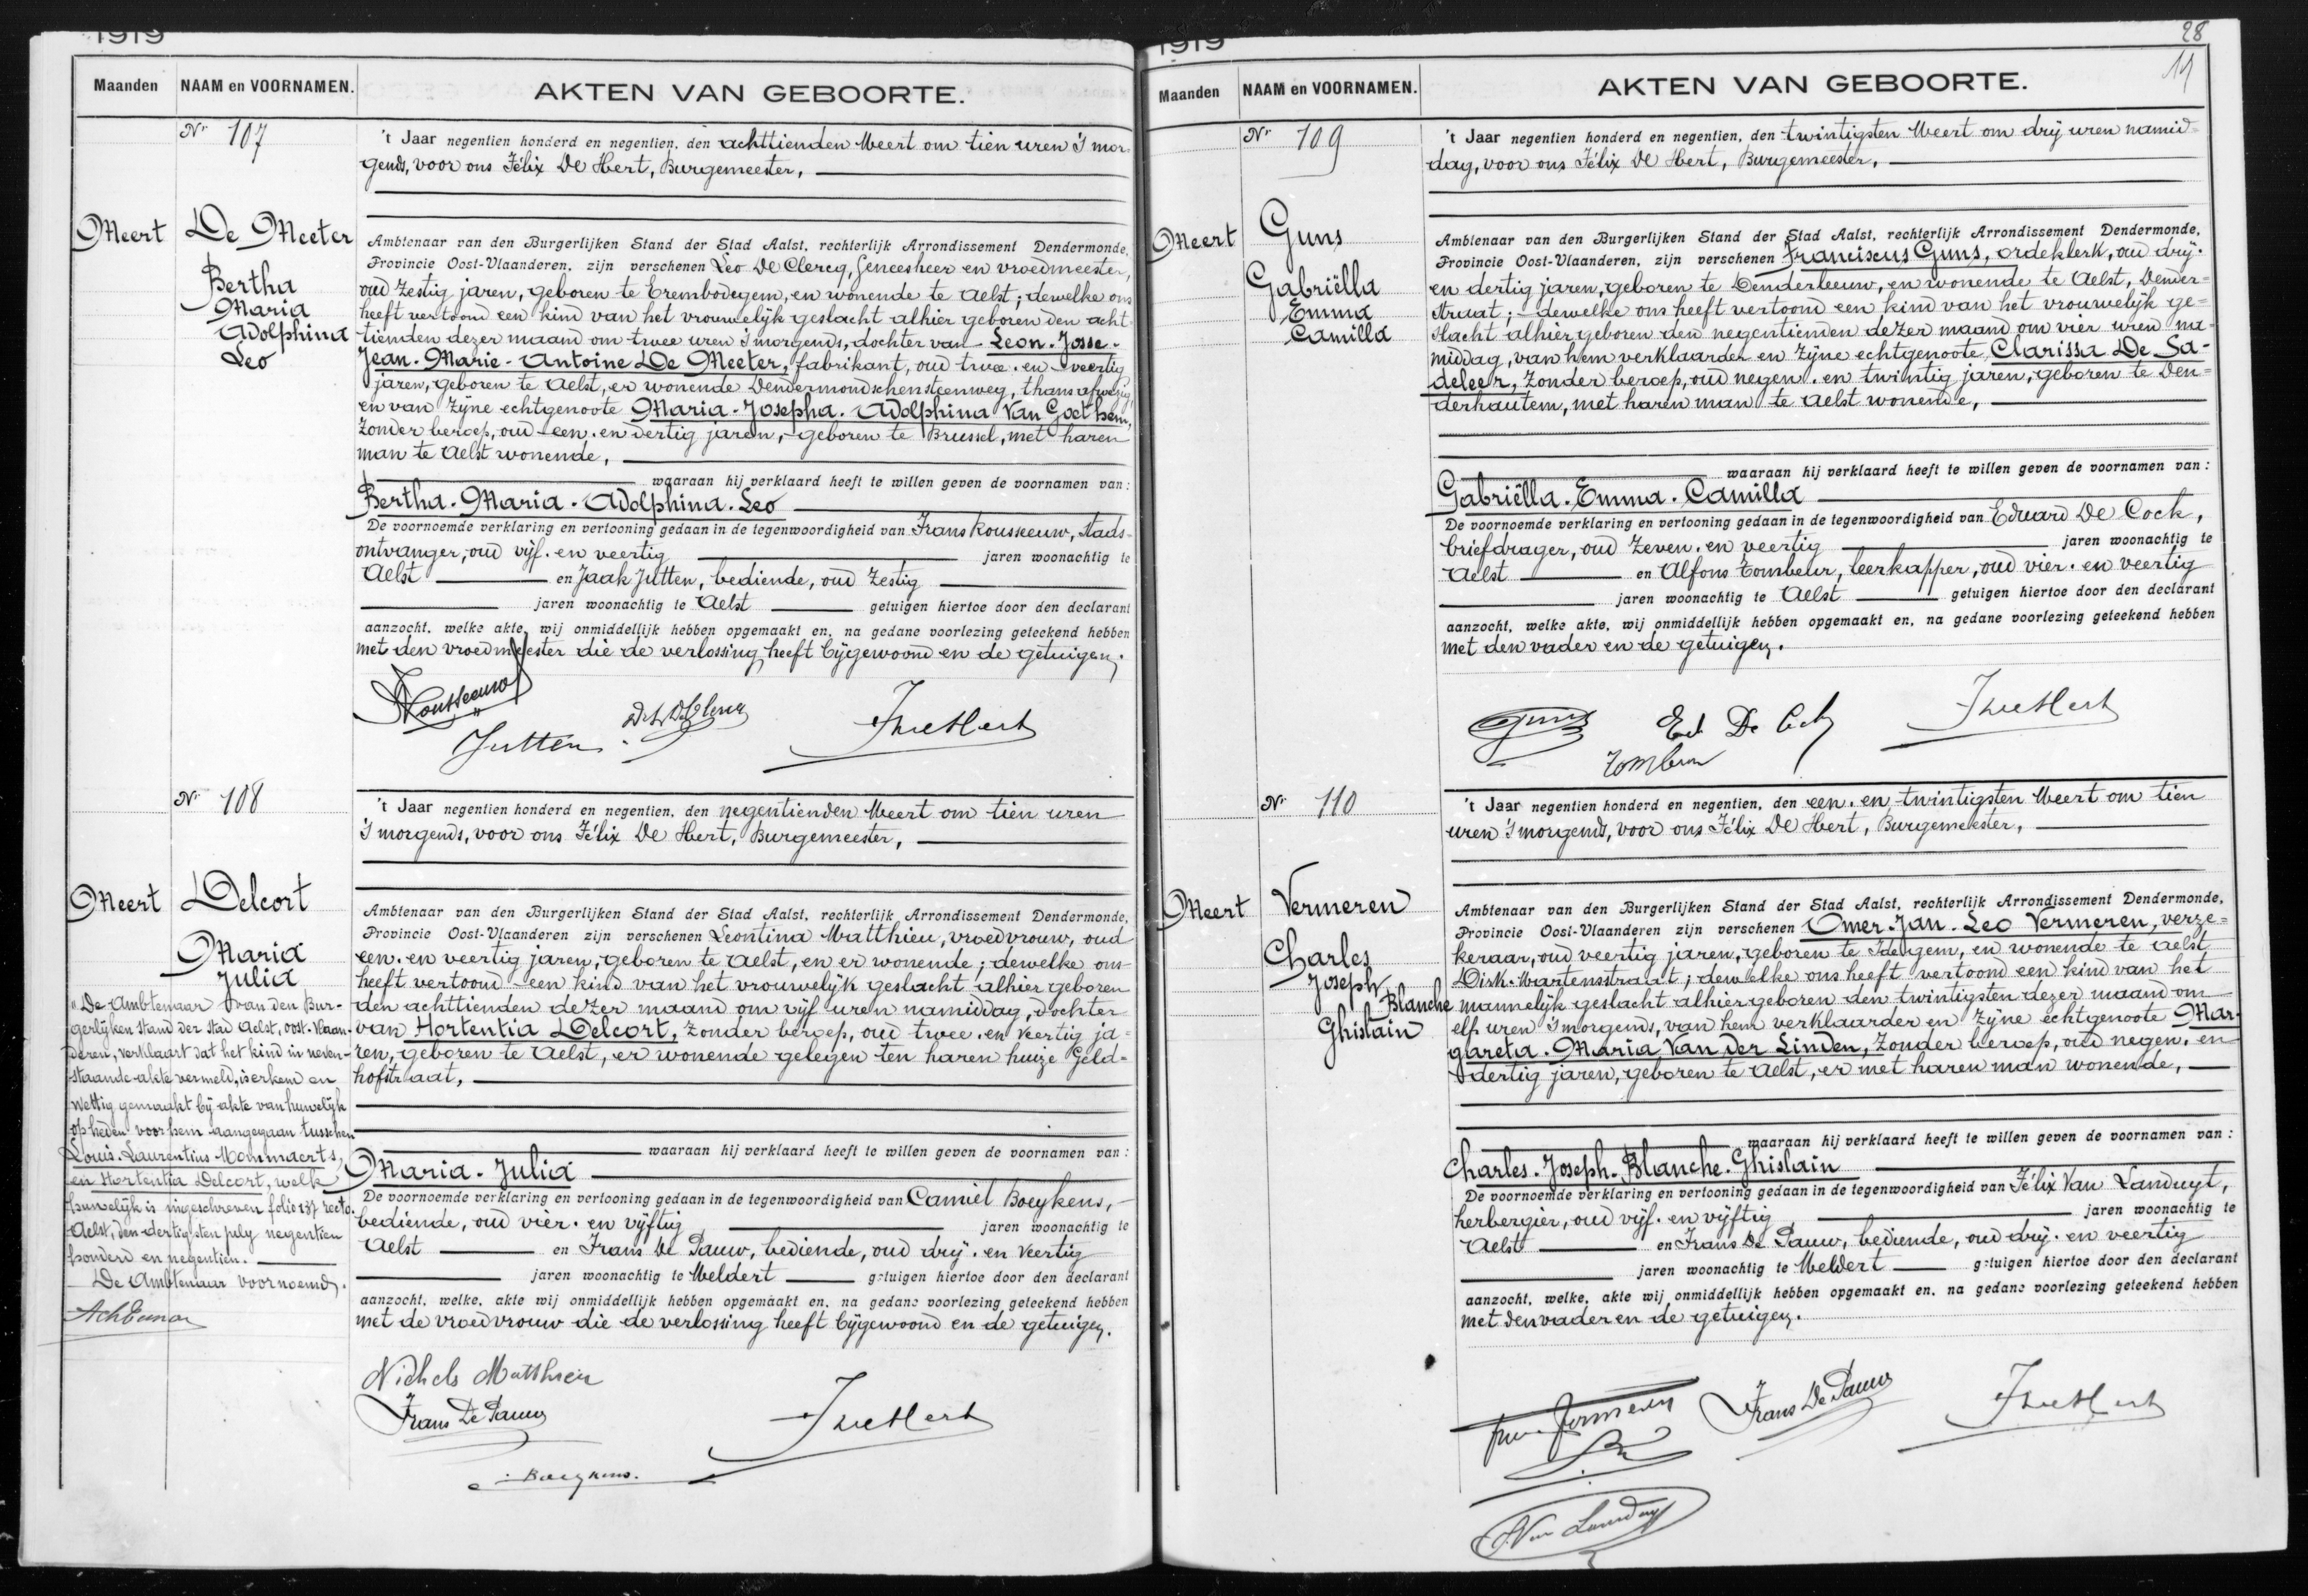 1919
Maanden
NAAM en VOORNAMEN.
AKTEN VAN GEBOORTE.
Nr 107
't Jaar negentien honderd en negentien, den achttienden Meert om tien uren 's mor-
gends, voor ons Félix De Hert, Burgemeester,
Meert
De Meeter
Bertha
Maria
Adolphina
Leo
Ambtenaar van den Burgerlijken Stand der Stad Aalst, rechterlijk Arrondissement Dendermonde,
Provincie Oost-Vlaanderen, zijn verschenen Leo De Clercq, Geneesheer en vroedmeester,
oud zestig jaren, geboren te Erembodegem, en wonende te Aelst; dewelke ons
heeft vertoond een kind van het vrouwelijk geslacht alhier geboren den acht-
tienden dezer maand om twee uren 's morgends, dochter van Leon-Josse-
Jean-Marie-Antoine De Meeter, fabrikant, oud twee-en-veertig
jaren, geboren te Aelst, er wonende Dendermondschensteenweg, thans afwezig,
en van zijne echtgenoote Maria-Josepha-Adolphina Van Goethem,
zonder beroep, oud een-en dertig jaren, geboren te Brussel, met haren
man te Aelst wonende,
waaraan hij verklaard heeft te willen geven de voornamen van:
Bertha-Maria-Adolphina-Leo
De voornoemde verklaring en vertooning gedaan in de tegenwoordigheid van Frans Kousseeuw, Stads-
ontvanger, oud vijf-en veertig jaren woonachtig te
Aelst en Jaak Jutten, bediende, oud zestig
jaren woonachtig te Aelst getuigen hiertoe door den declarant
aanzocht, welke akte, wij onmiddellijk hebben opgemaakt en, na gedane voorlezing geteekend hebben
met den vroedmeester die de verlossing heeft bijgewoond en de getuigen.
Kousseeuw
Jutten
FDeHert
Nr 108
't Jaar negentien honderd en negentien, den negentienden Meert om tien uren
's morgends, voor ons Félix De Hert, Burgemeester,
Meert
Delcort
Maria
Julia
Ambtenaar van den Burgerlijken Stand der Stad Aalst, rechterlijk Arrondissement Dendermonde,
Provincie Oost-Vlaanderen zijn verschenen Leontina Matthieu, vroedvrouw, oud
een-en veertig jaren, geboren te Aelst, en er wonende; dewelke ons
heeft vertoond een kind van het vrouwelijk geslacht alhier geboren
den achttienden dezer maand om vijf uren namiddag, dochter
van Hortentia Delcort, zonder beroep, oud twee-en veertig ja-
ren, geboren te Aelst, er wonende gelegen ten haren huize Geld-
hofstraat,
waaraan hij verklaard heeft te willen geven de voornamen van:
Maria-Julia
De voornoemde verklaring en vertooning gedaan in de tegenwoordigheid van Camiel Boeykens,
bediende, oud vier-en vijftig jaren woonachtig te
Aelst en Frans De Pauw, bediende, oud drij-en veertig
jaren woonachtig te Meldert getuigen hiertoe door den declarant
aanzocht, welke, akte wij onmiddellijk hebben opgemaakt en, na gedane voorlezing geteekend hebben
met de vroedvrouw die de verlossing heeft bijgewoond en de getuigen.
"De Ambtenaar van den Bur-
gerlijken stand der stad Aelst, Oost-Vlaan-
deren, verklaart dat het kind in neven-
staande akte vermeld, is erkend en
wettig gemaakt bij akte van huwelijk
op heden voor hem aangegaan tusschen
Louis-Laurentius Mommaerts,
en Hortentia Delcort, welk
huwelijk is ingeschreven folio 137 recto.
Aelst, den dertigsten july negentien
honderd en negentien.
De Ambtenaar voornoemd,
Nichels Matthieu
Frans De Pauw
FDeHert
Boeykens.
1919
28
Maanden
NAAM en VOORNAMEN.
AKTEN VAN GEBOORTE.
Nr 109
't Jaar negentien honderd en negentien, den twintigsten Meert om drij uren namid-
dag, voor ons Félix De Hert, Burgemeester,
Meert
Guns
Gabriëlla
Emma
Camilla
Ambtenaar van den Burgerlijken Stand der Stad Aalst, rechterlijk Arrondissement Dendermonde,
Provincie Oost-Vlaanderen, zijn verschenen Franciscus Guns, ordeklerk, oud drij-
en dertig jaren, geboren te Denderleeuw, en wonende te Aelst, Dender-
straat; dewelke ons heeft vertoond een kind van het vrouwelijk ge-
slacht alhier geboren den negentienden dezer maand om vier uren na-
middag, van hem verklaarder en zijne echtgenoote Clarissa De Sa-
deleer, zonder beroep, oud negen-en twintig jaren, geboren te Den-
derhautem, met haren man te Aelst wonende,
waaraan hij verklaard heeft te willen geven de voornamen van:
Gabriëlla-Emma-Camilla
De voornoemde verklaring en vertooning gedaan in de tegenwoordigheid van Eduard De Cock,
briefdrager, oud zeven-en veertig jaren woonachtig te
Aelst en Alfons Tombeur, leerkapper, oud vier-en veertig
jaren woonachtig te Aelst getuigen hiertoe door den declarant
aanzocht, welke akte, wij onmiddellijk hebben opgemaakt en, na gedane voorlezing geteekend hebben
met den vader en de getuigen.
Guns
Ed. De Cock
FDeHert
Tombeur
Nr 110
't Jaar negentien honderd en negentien, den een-en twintigsten Meert om tien
uren 's morgends, voor ons Félix De Hert, Burgemeester,
Meert
Vermeren
Charles
Joseph
Blanche
Ghislain
Ambtenaar van den Burgerlijken Stand der Stad Aalst, rechterlijk Arrondissement Dendermonde,
Provincie Oost-Vlaanderen zijn verschenen Omer-Jan-Leo Vermeren, verze-
keraar, oud veertig jaren, geboren te Idegem, en wonende te Aelst
Dirk-Martensstraat; dewelke ons heeft vertoond een kind van het
mannelijk geslacht alhier geboren den twintigsten dezer maand om
elf uren 's morgends, van hem verklaarder en zijne echtgenoote Mar-
gareta-Maria Van der Linden, zonder beroep, oud negen-en
dertig jaren, geboren te Aelst, er met haren man wonende,
waaraan hij verklaard heeft te willen geven de voornamen van:
Charles-Joseph-Blanche-Ghislain
De voornoemde verklaring en vertooning gedaan in de tegenwoordigheid van Félix Van Landuyt,
herbergier, oud vijf-en vijftig jaren woonachtig te
Aelst en Frans De Pauw, bediende, oud drij-en veertig
jaren woonachtig te Meldert getuigen hiertoe door den declarant
aanzocht, welke, akte wij onmiddellijk hebben opgemaakt en, na gedane voorlezing geteekend hebben
met den vader en de getuigen.
Vermeren
Frans De Pauw
FDeHert
Van Landuyt